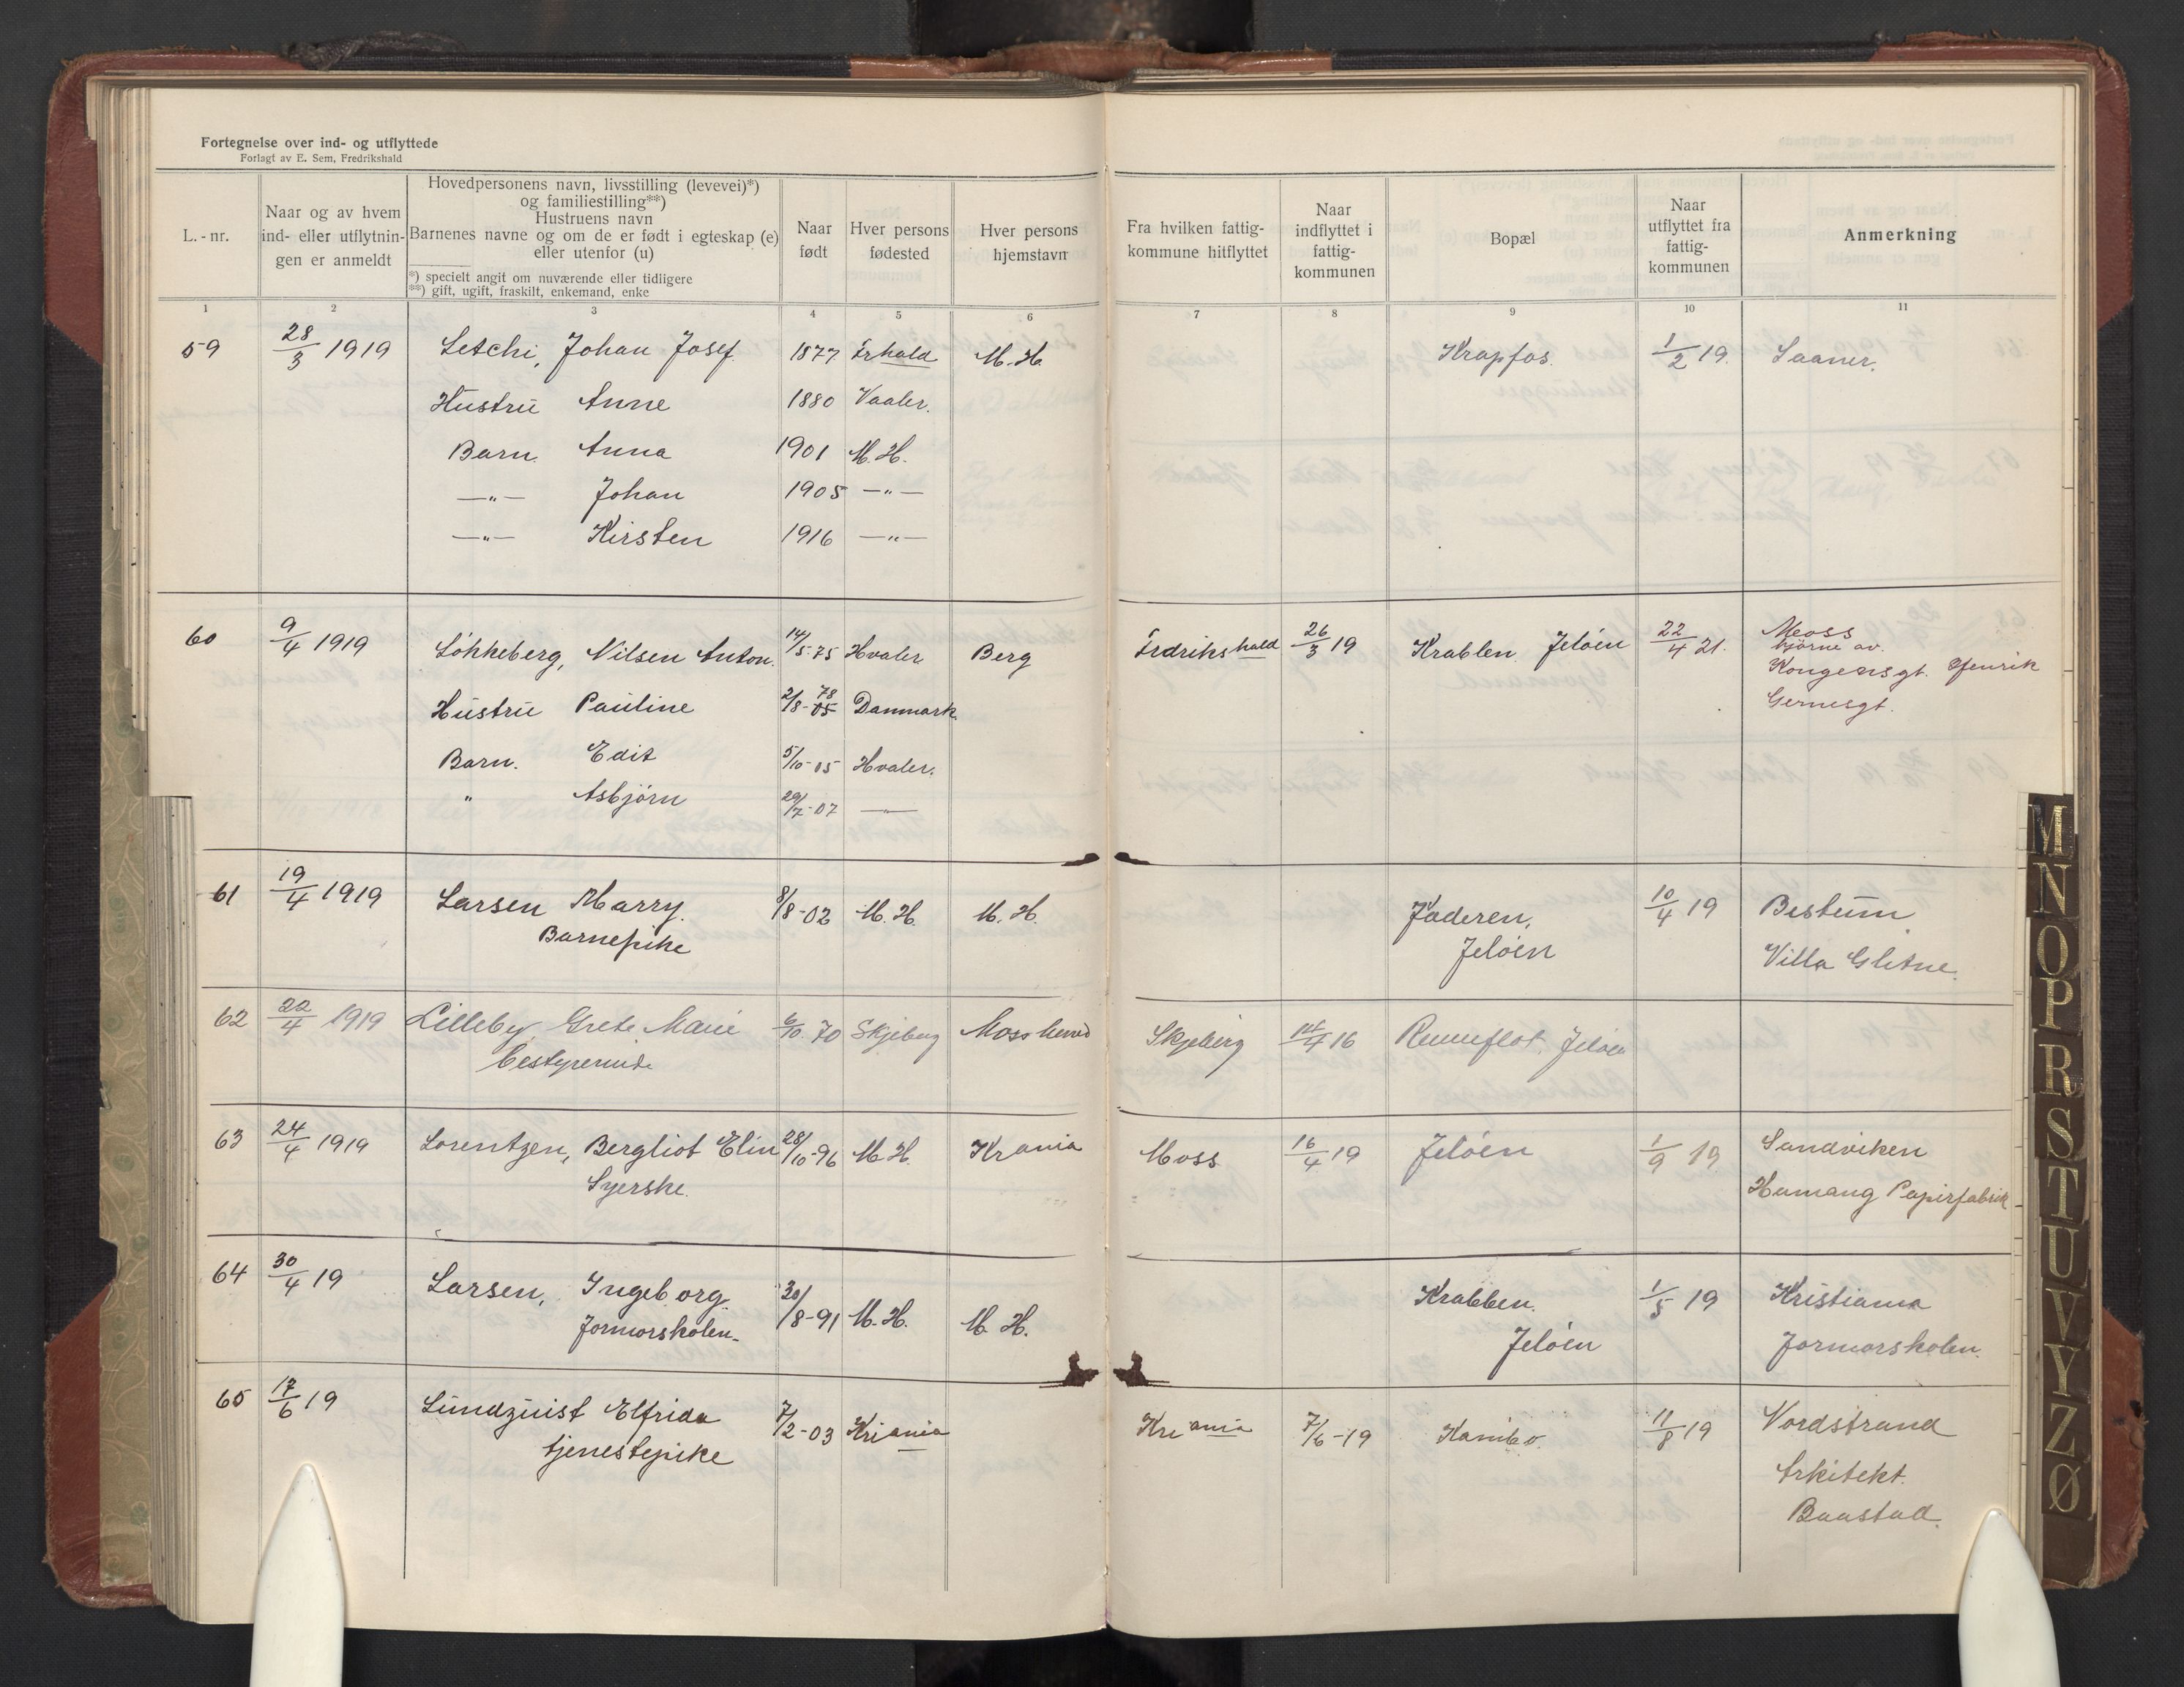 Fortegnelse over ind- og utflyttede
Forlagt av E. Sem, Fredrikshald
L.-nr.
Naar og av hvem ind- eller utflytnin-gen er anmeldt
Hovedpersonens navn, livsstilling (levevei)*)
og familiestilling**)
Hustruens navn
Barnenes navne og om de er født i egteskap (e)
eller utenfor (u)
*) specielt angit om nuværende eller tidligere
**) gift, ugift, fraskilt, enkemand, enke
Naar født
Hver persons fødested
Hver persons hjemstavn
Fra hvilken fattig-kommune hitflyttet
Naar indflyttet i fattig-kommunen
Bopæl
Naar utflyttet fra fattig-kommunen
Anmerkning
1 2 3 4 5 6 7 8 9 10 11
59 28/3 1919 Letchi, Johan Josef. 1877 Frhald M.H. Krapfos. 1/2 19. Saaner.
Hustru Anne 1880 Vaaler.
Barn. Anna 1901 M.H.
—"— Johan 1905 —"—
—"— Kirsten 1916 —"—
60 9/4 1919 Løkkeberg, Nilsen Anton. 14/5-75 Hvaler Berg Fredrikshald 26/3 19 Krablen Jeløen 22/4 21. Moss
hjørne av.
Kongensgt. Henrik
Gernesgt.
Hustru Pauline 2/8-05 78 Danmark.
Barn. Edit 5/10-05 Hvaler.
" Asbjørn 29/7-07 —
61 19/4 1919 Larsen Marry. 8/8-02 M.H. M.H. Jaderen, 10/4 19 Bestum
Barnepike Jeløen Villa Glitne.
62 22/4 1919 Lilleby, Grete Marie 6/10 70 Skjeberg Moss herred Skjeberg 14/4 16 Jeløen
bestyrerinde
63 24/4 1919 Lorentzen, Bergliot Elin 28/10-96 M.H. Krania Moss 16/4 19 Jeløen 1/9 19 Sandviken
Syerske. Hamang Papirfabrik
64 30/4 19 Larsen, Ingeborg. 30/8-91 M.H. M.H. Krabben. 1/5 19 Kristiania
Jormorskolen. Jeløen Jormorskolen.
65 17/6 19 Lundquist Elfrida 7/2-03 Kriania Kriania 7/6-19 Kambo. 11/8 19 Nordstrand
tjenestepike Arkitekt.
Baastad.
M
N
O
P
R
S
T
U
V
Y
Z
Ø